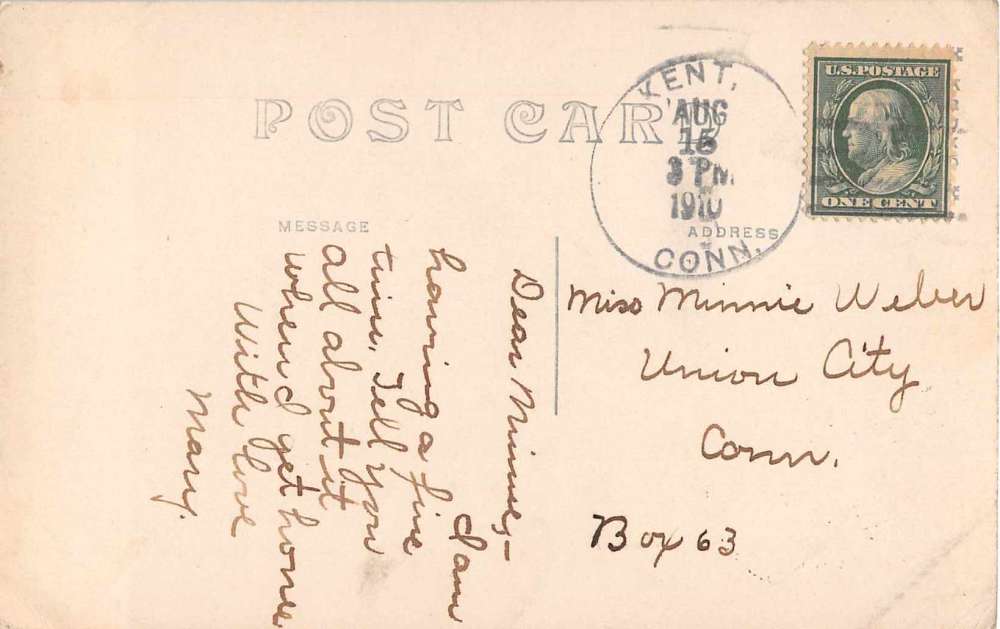 POST CARD
KENT,
AUG
15
3 PM
1910
CONN.
U.S. POSTAGE
ONE CENT
MESSAGE
ADDRESS
Dear Minnsey—
I am
having a fine
time. Tell you
all about it
when I get home
With love
Mary.
Miss Minnie Weber
Union City
Conn.
Box 63